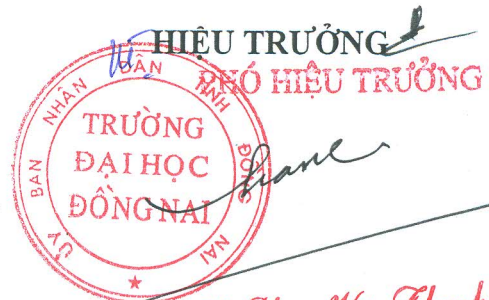 HIỆU TRƯỞNG
PHÓ HIỆU TRƯỞNG
ỦY BAN NHÂN DÂN TỈNH ĐỒNG NAI
TRƯỜNG
ĐẠI HỌC
ĐỒNG NAI